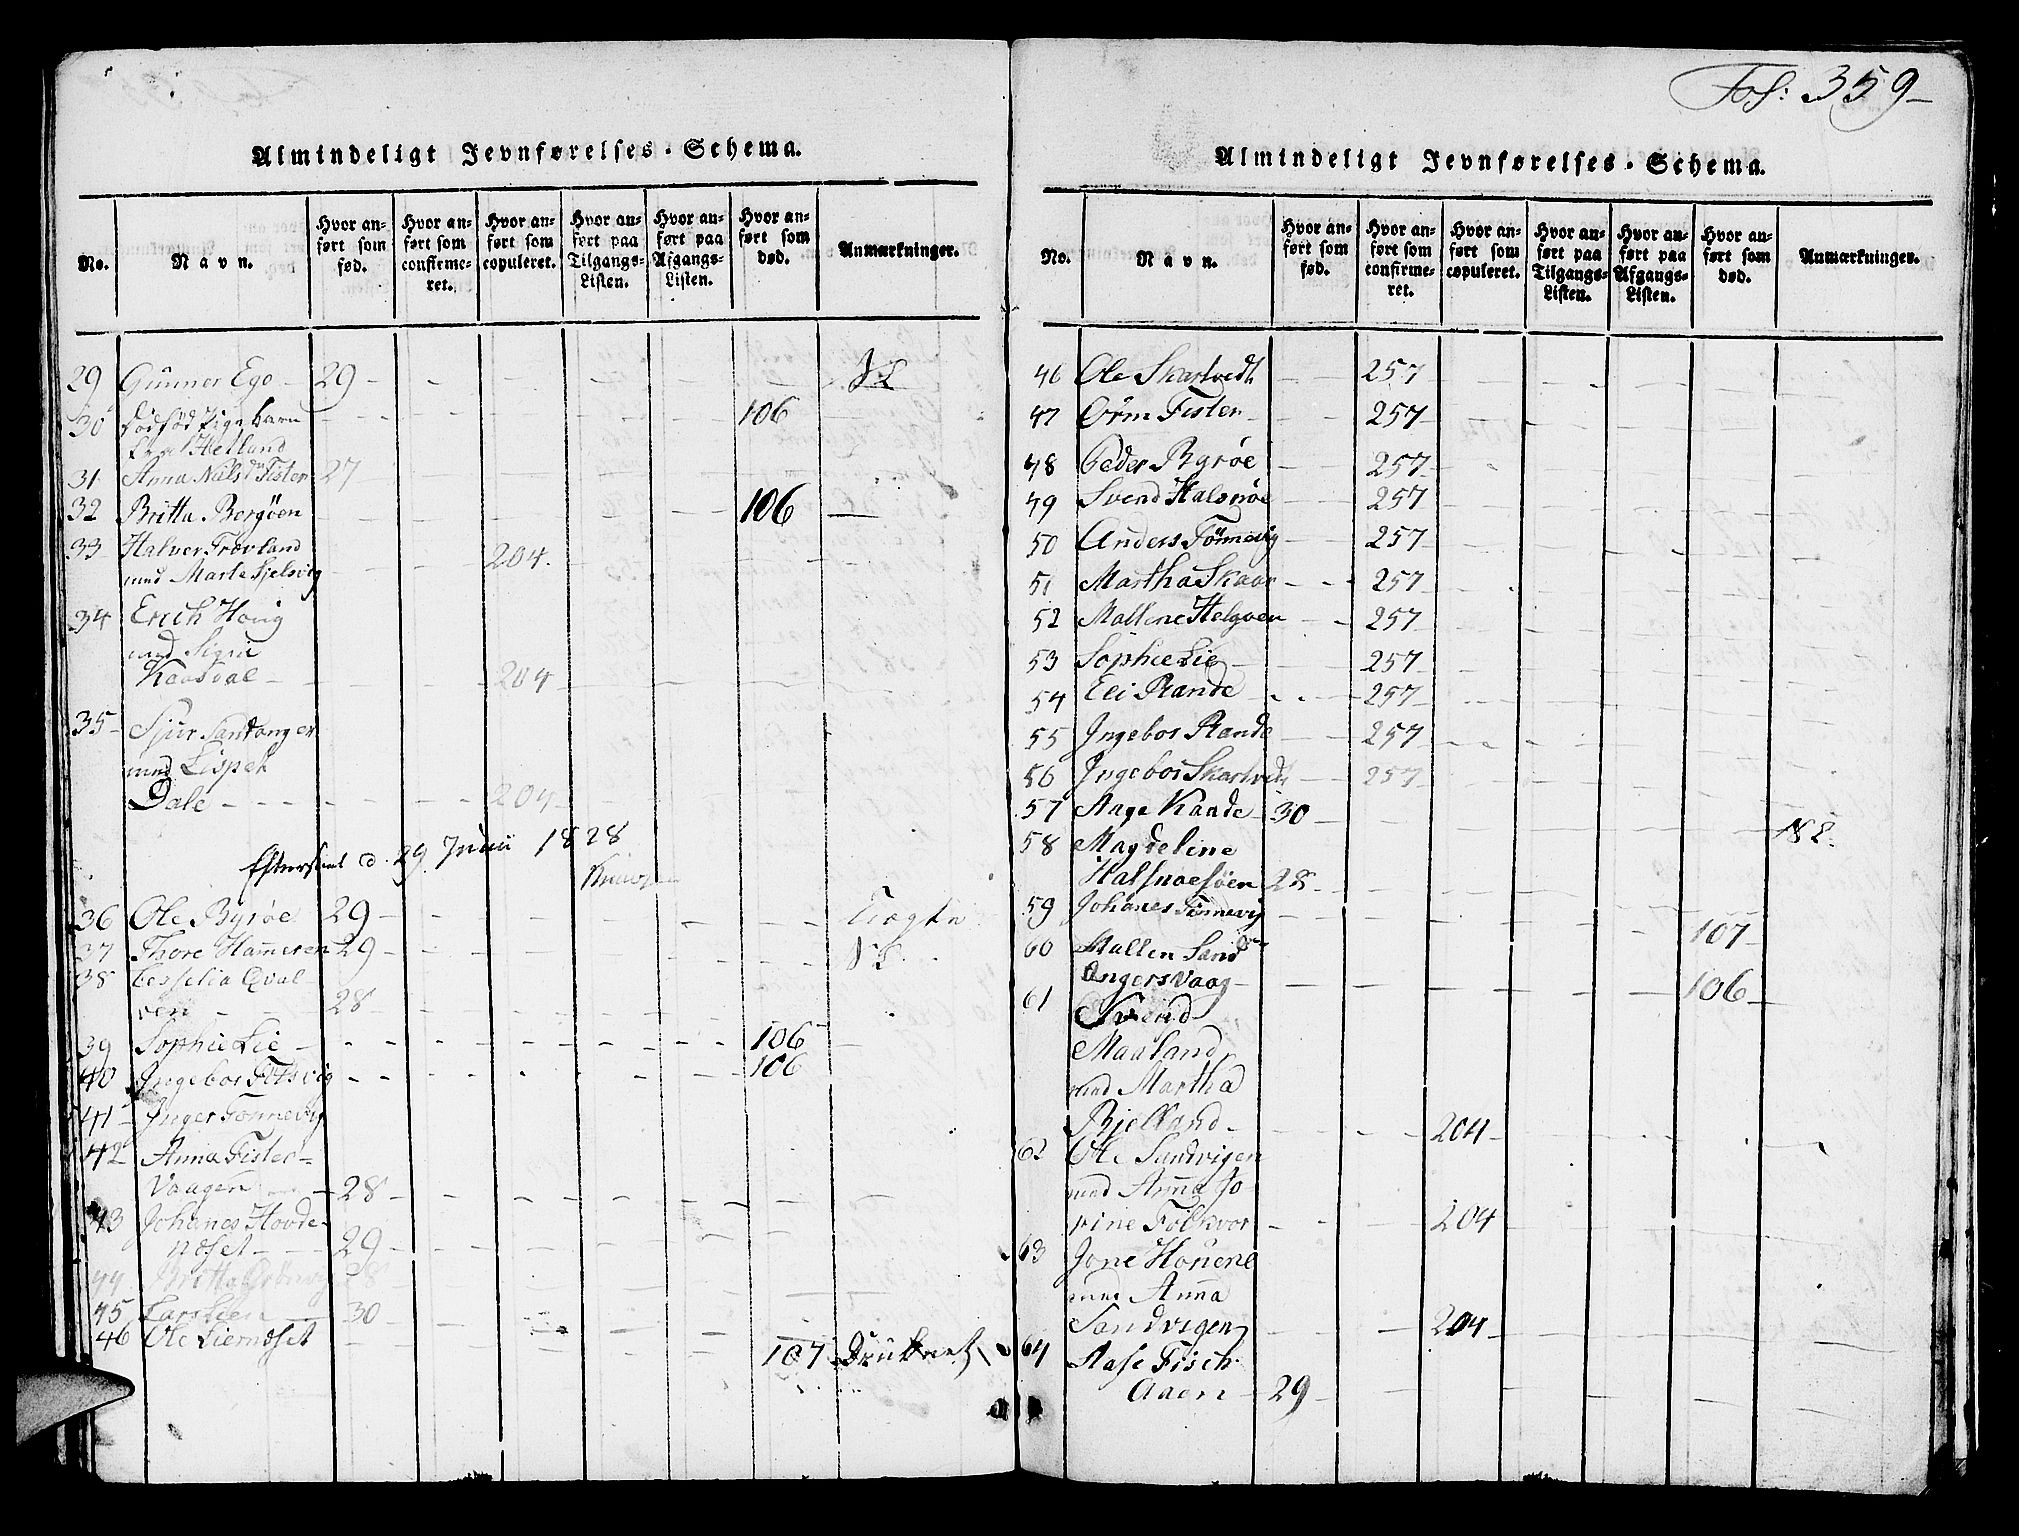 Almindeligt Jevnførelses-Schema.
No. Navn. Hvor anført som fød. Hvor anført som confirmeret. Hvor anført som copuleret. Hvor anført paa Tilgangs-Listen. Hvor anført paa Afgangs-Listen. Hvor anført som død. Anmærkninger.
29 Gunner Egø 29
30 Dødfød Pige barn 106
Helland
31 Anna Nilsd Fister 27
32 Britta Bergøen 106
33 Halver Trovland
med Marte Sjelsvig 204.
34 Erich Houg
med Sigri
Kaasdal 204
35 Sjur Sandanger
med Lispet
Dale 204
Efterseet d. 29 Juni 1828
36 Ole Byrøe 29
37 Thore Hammeren 29
38 Cesselia Qval
ven 28
39 Sophie Lie 106
40 Ingebor Fitsvig 106
41 Inger Tønnevig
42 Anna Fister
Vaagen 28
43 Johanes Hovde
næset 29
44 Britta 28
45 Lars Lien 30
46 Ole Liernæset 107 Druknet
Fol: 359
Almindeligt Jevnførelses-Schema.
No. Navn. Hvor anført som fød. Hvor anført som confirmeret. Hvor anført som copuleret. Hvor anført paa Tilgangs-Listen. Hvor anført paa Afgangs-Listen. Hvor anført som død. Anmærkninger.
46 Ole Skartvedt 257
47 Orm Fister 257
48 Peder Byrøe 257
49 Svend Halsnøe 257
50 Anders Tønnevig 257
51 Martha Skaar 257
52 Mallene Helgøen 257
53 Sophie Lie 257
54 Eli Rande 257
55 Ingebor Rande 257
56 Ingebor Skartvedt 257
57 Aage Kaade 30
58 Magdeline
Halsnøesøen 28
59 Johanes Tønnevig 107
60 Mallen Sand
Angersvaag 106
61 Svend
Maaland
med Martha
Bjelland 204
62 Ole Sandvigen
med Anna Jo
rine Folkvor 204
63 Jone Houene
med Anna
Sandvigen 204
64 Aase Fisch
Aaen 29